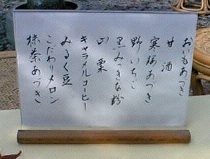 おいもあづき
甘酒
寒梅あづき
野いちご
黒みつきな粉
山栗
キャラメルコーヒー
みるく豆
こだわりメロン
抹茶あづき